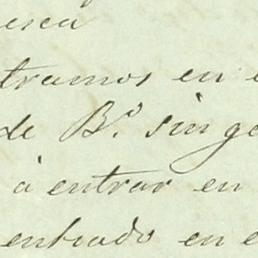 esca
tramos en e
de B.º sin ge
à entrar en
entrado en e